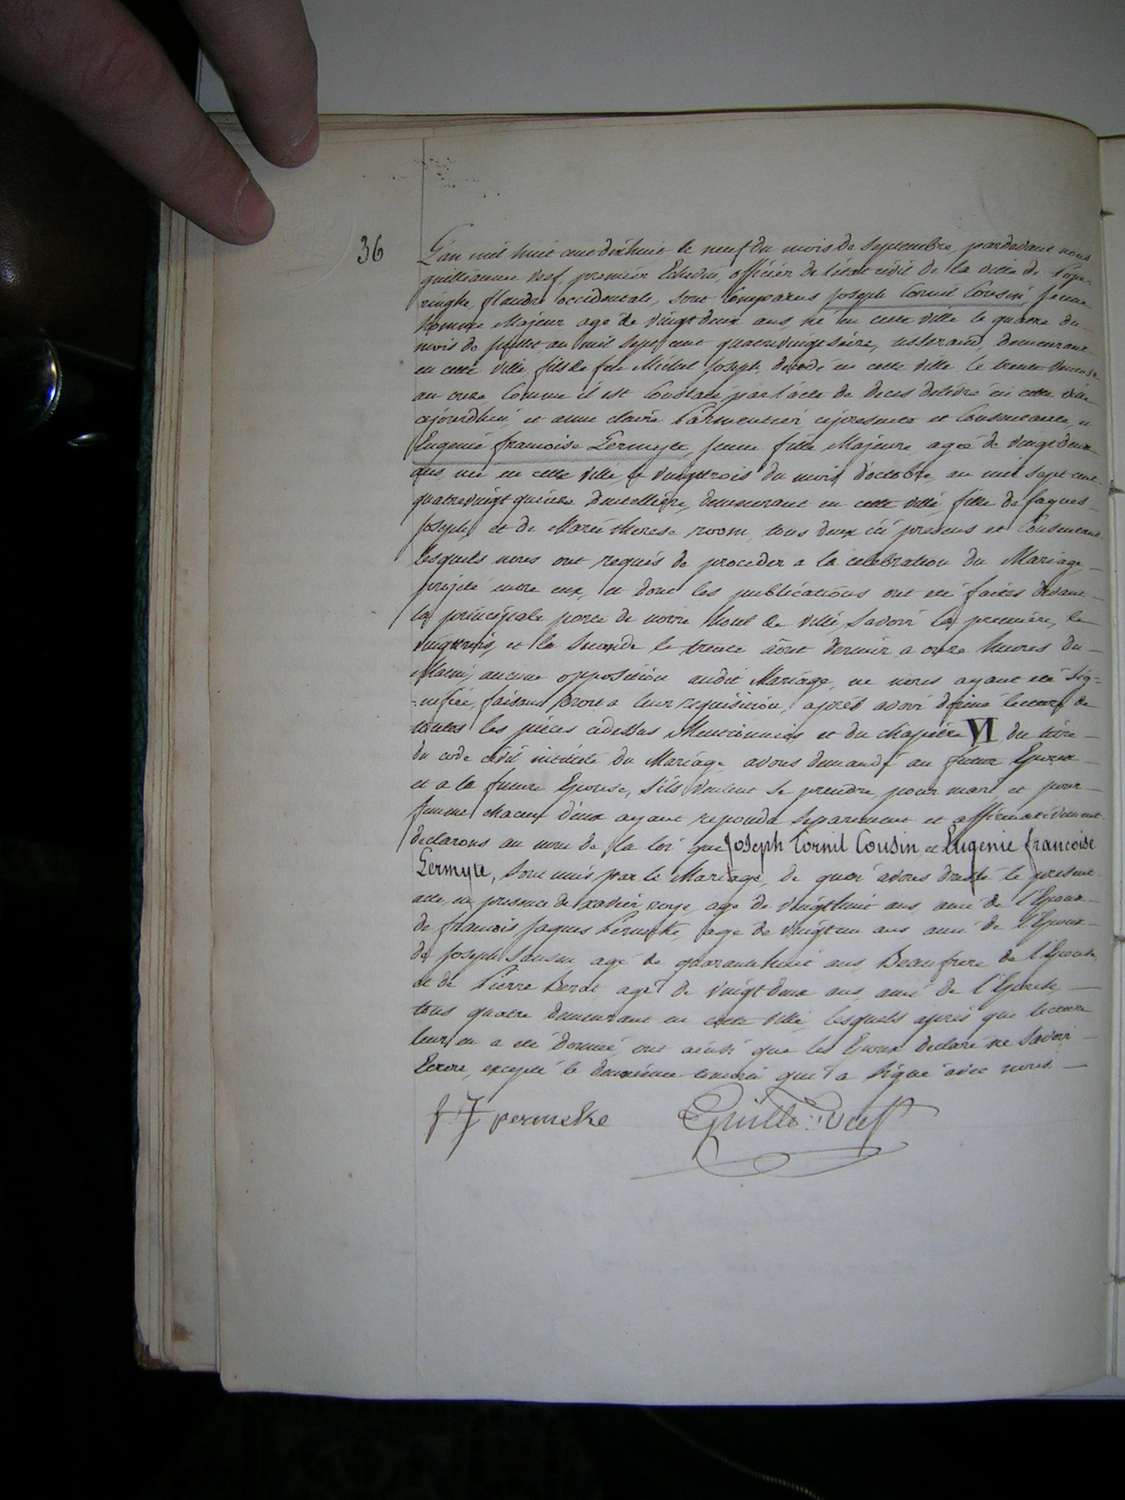 36
L'an mil huit cent dixhuit le neuf du mois de Septembre, pardevant nous
guilliaume Vief premier Echevin, officier de l'état civil de la ville de Pope-
ringhe, flandre occidentale, sont Comparus Joseph Cornil Cousin, jeune
homme Majeur agé de vingt deux ans, né en cette ville le quatre du
mois de juillet, an mil sept cent quatrevingtseize, demeurant
en cette ville, fils de feu Michel Joseph, decedé en cette ville le trente
an onze, Comme il est Constaté par l'acte de deces delivré en cette ville
cejourdhui, et anne claire Parmentier cipresente et Consentante, et
Eugenie francoise Lermyte, jeune fille Majeure ageé de vingt deux
ans, née en cette ville le vingttrois du mois d'octobre, an mil sept cent
quatrevingt quinze, dentelliere, demeurant en cette ville, fille de Jaques
Joseph, et de Marie therese room, tous deux ici presens et Consentans
lesquels nous ont requis de proceder a la celebration du Mariage
projeté entre eux, et dont les publications ont été faites devant
la principale porte de notre Maison de ville, Savoir la premiere, le
vingttrois, et la Seconde le trente août dernier, a onze heures du
Matin, aucune opposition audit Mariage, ne nous ayant été Sig-
nifiée, faisant Droit a leur requisition, après avoir donné lecture de
toutes les pièces cidessus Mentionnées et du chapitre VI du titre
du code civil intitulé du Mariage, avons demandé au futur Epoux
et a la future Epouse, s'ils veulent se prendre pour mari et pour
femme, chacun d'eux ayant repondu Separement et affirmativement
declarons au nom de la loi que Joseph Cornil Cousin et Eugenie francoise
Lermyte, sont unis par le Mariage, de quoi avons dressé le present
acte, en presence de xavier agé de vingthuit ans, ami de l'Epoux
de francois Jaques Perinske, agé de vingt un ans ami de l'Epoux
de Joseph agé de quarantehuit ans Beaufrere de l'Epouse
et de Pierre agé de vingt deux ans, ami de l'Epouse
tous quatre demeurant en cette ville, lesquels après que lecture
leur en a été donnée, ont ainsi que les Epoux declaré ne Savoir
Ecrire, excepté le deuxième temoin qui l'a Signé avec nous
f J perinske Guille. Vief